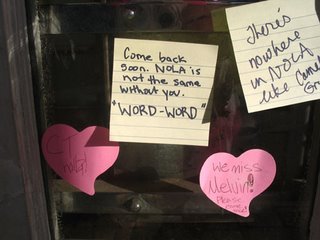 Come back
soon. NOLA is
not the same
without you.
"WORD-WORD"
There's
nowhere
in NOLA
like
CT
We miss
Melvin!
Please